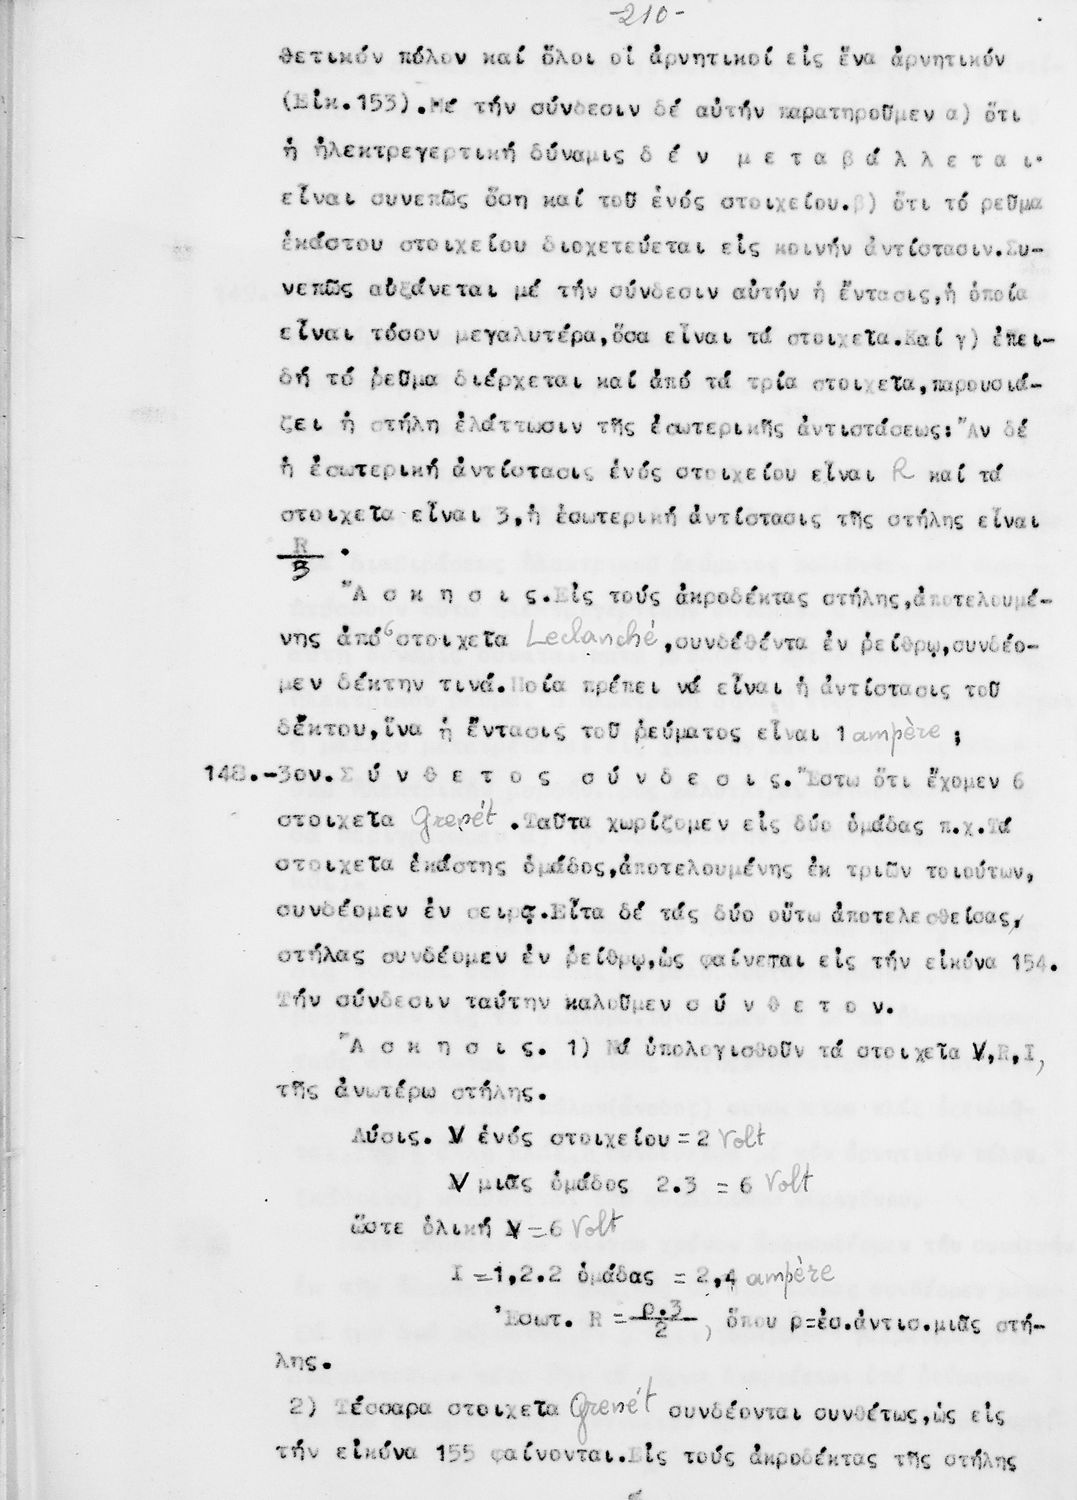 -210-
θετικόν πόλον καί ὅλοι οἱ ἀρνητικοί εἰς ἕνα ἀρνητικόν
(Εἰκ.153).Μέ τήν σύνδεσιν δέ αὐτήν παρατηροῦμεν α) ὅτι
ἡ ἠλεκτρεγερτική δύναμις δ έ ν μ ε τ α β ά λ λ ε τ α ι·
εἶναι συνεπῶς ὅση καί τοῦ ἑνός στοιχείου.β) ὅτι τό ρεῦμα
ἑκάστου στοιχείου διοχετεύεται εἰς κοινήν ἀντίστασιν.Συ-
νεπῶς αὐξάνεται μέ τήν σύνδεσιν αὐτήν ἡ ἔντασις,ἡ ὁποία
εἶναι τόσον μεγαλυτέρα,ὅσα εἶναι τά στοιχεῖα.Καί γ) ἐπει-
δή τό ῥεῦμα διέρχεται καί ἀπό τά τρία στοιχεῖα,παρουσιά-
ζει ἡ στήλη ἐλάττωσιν τῆς ἐσωτερικῆς ἀντιστάσεως:Ἄν δέ
ἡ ἐσωτερική ἀντίστασις ἑνός στοιχείου εἶναι R καί τά
στοιχεῖα εἶναι 3,ἡ ἐσωτερική ἀντίστασις τῆς στήλης εἶναι
R/3 .
Ἄ σ κ η σ ι ς.Εἰς τούς ἀκροδέκτας στήλης,ἀποτελουμέ-
νης ἀπό 6 στοιχεῖα Leclanché,συνδέθέντα ἐν ῥείθρῳ,συνδέο-
μεν δέκτην τινά.Ποία πρέπει νά εἶναι ἡ ἀντίστασις τοῦ
δέκτου,ἵνα ἡ ἔντασις τοῦ ῥεύματος εἶναι 1 ampère ;
148.-3ον.Σ ύ ν θ ε τ ο ς σ ύ ν δ ε σ ι ς.Ἔστω ὅτι ἔχομεν 6
στοιχεῖα Grenét .Ταῦτα χωρίζομεν εἰς δύο ὁμάδας π.χ.Τά
στοιχεῖα ἑκάστης ὁμάδος,ἀποτελουμένης ἐκ τριῶν τοιούτων,
συνδέομεν ἐν σειρᾷ.Εἶτα δέ τάς δύο οὕτω ἀποτελεσθείσας,
στήλας συνδέομεν ἐν ῥείθρῳ,ὡς φαίνεται εἰς τήν εἰκόνα 154.
Τήν σύνδεσιν ταύτην καλοῦμεν σ ύ ν θ ε τ ο ν.
Ἄ σ κ η σ ι ς. 1) Νά ὑπολογισθοῦν τά στοιχεῖα V,R,I,
τῆς ἀνωτέρω στήλης.
Λύσις. V ἑνός στοιχείου = 2 Volt
V μιᾶς ὁμάδος 2.3 = 6 Volt
ὥστε ὁλική V = 6 Volt
I = 1,2.2 ὁμάδας = 2,4 ampère
Ἐσωτ. R = ρ.3/2 , ὅπου ρ=ἐσ.ἀντισ.μιᾶς στή-
λης.
2) Τέσσαρα στοιχεῖα Grenét συνδέονται συνθέτως,ὡς εἰς
τήν εἰκόνα 155 φαίνονται.Εἰς τούς ἀκροδέκτας τῆς στήλης